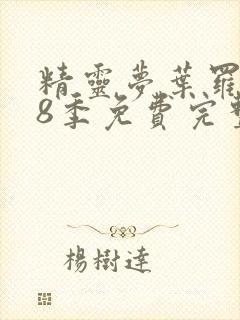 精靈夢葉羅
8季免費完整
楊樹達